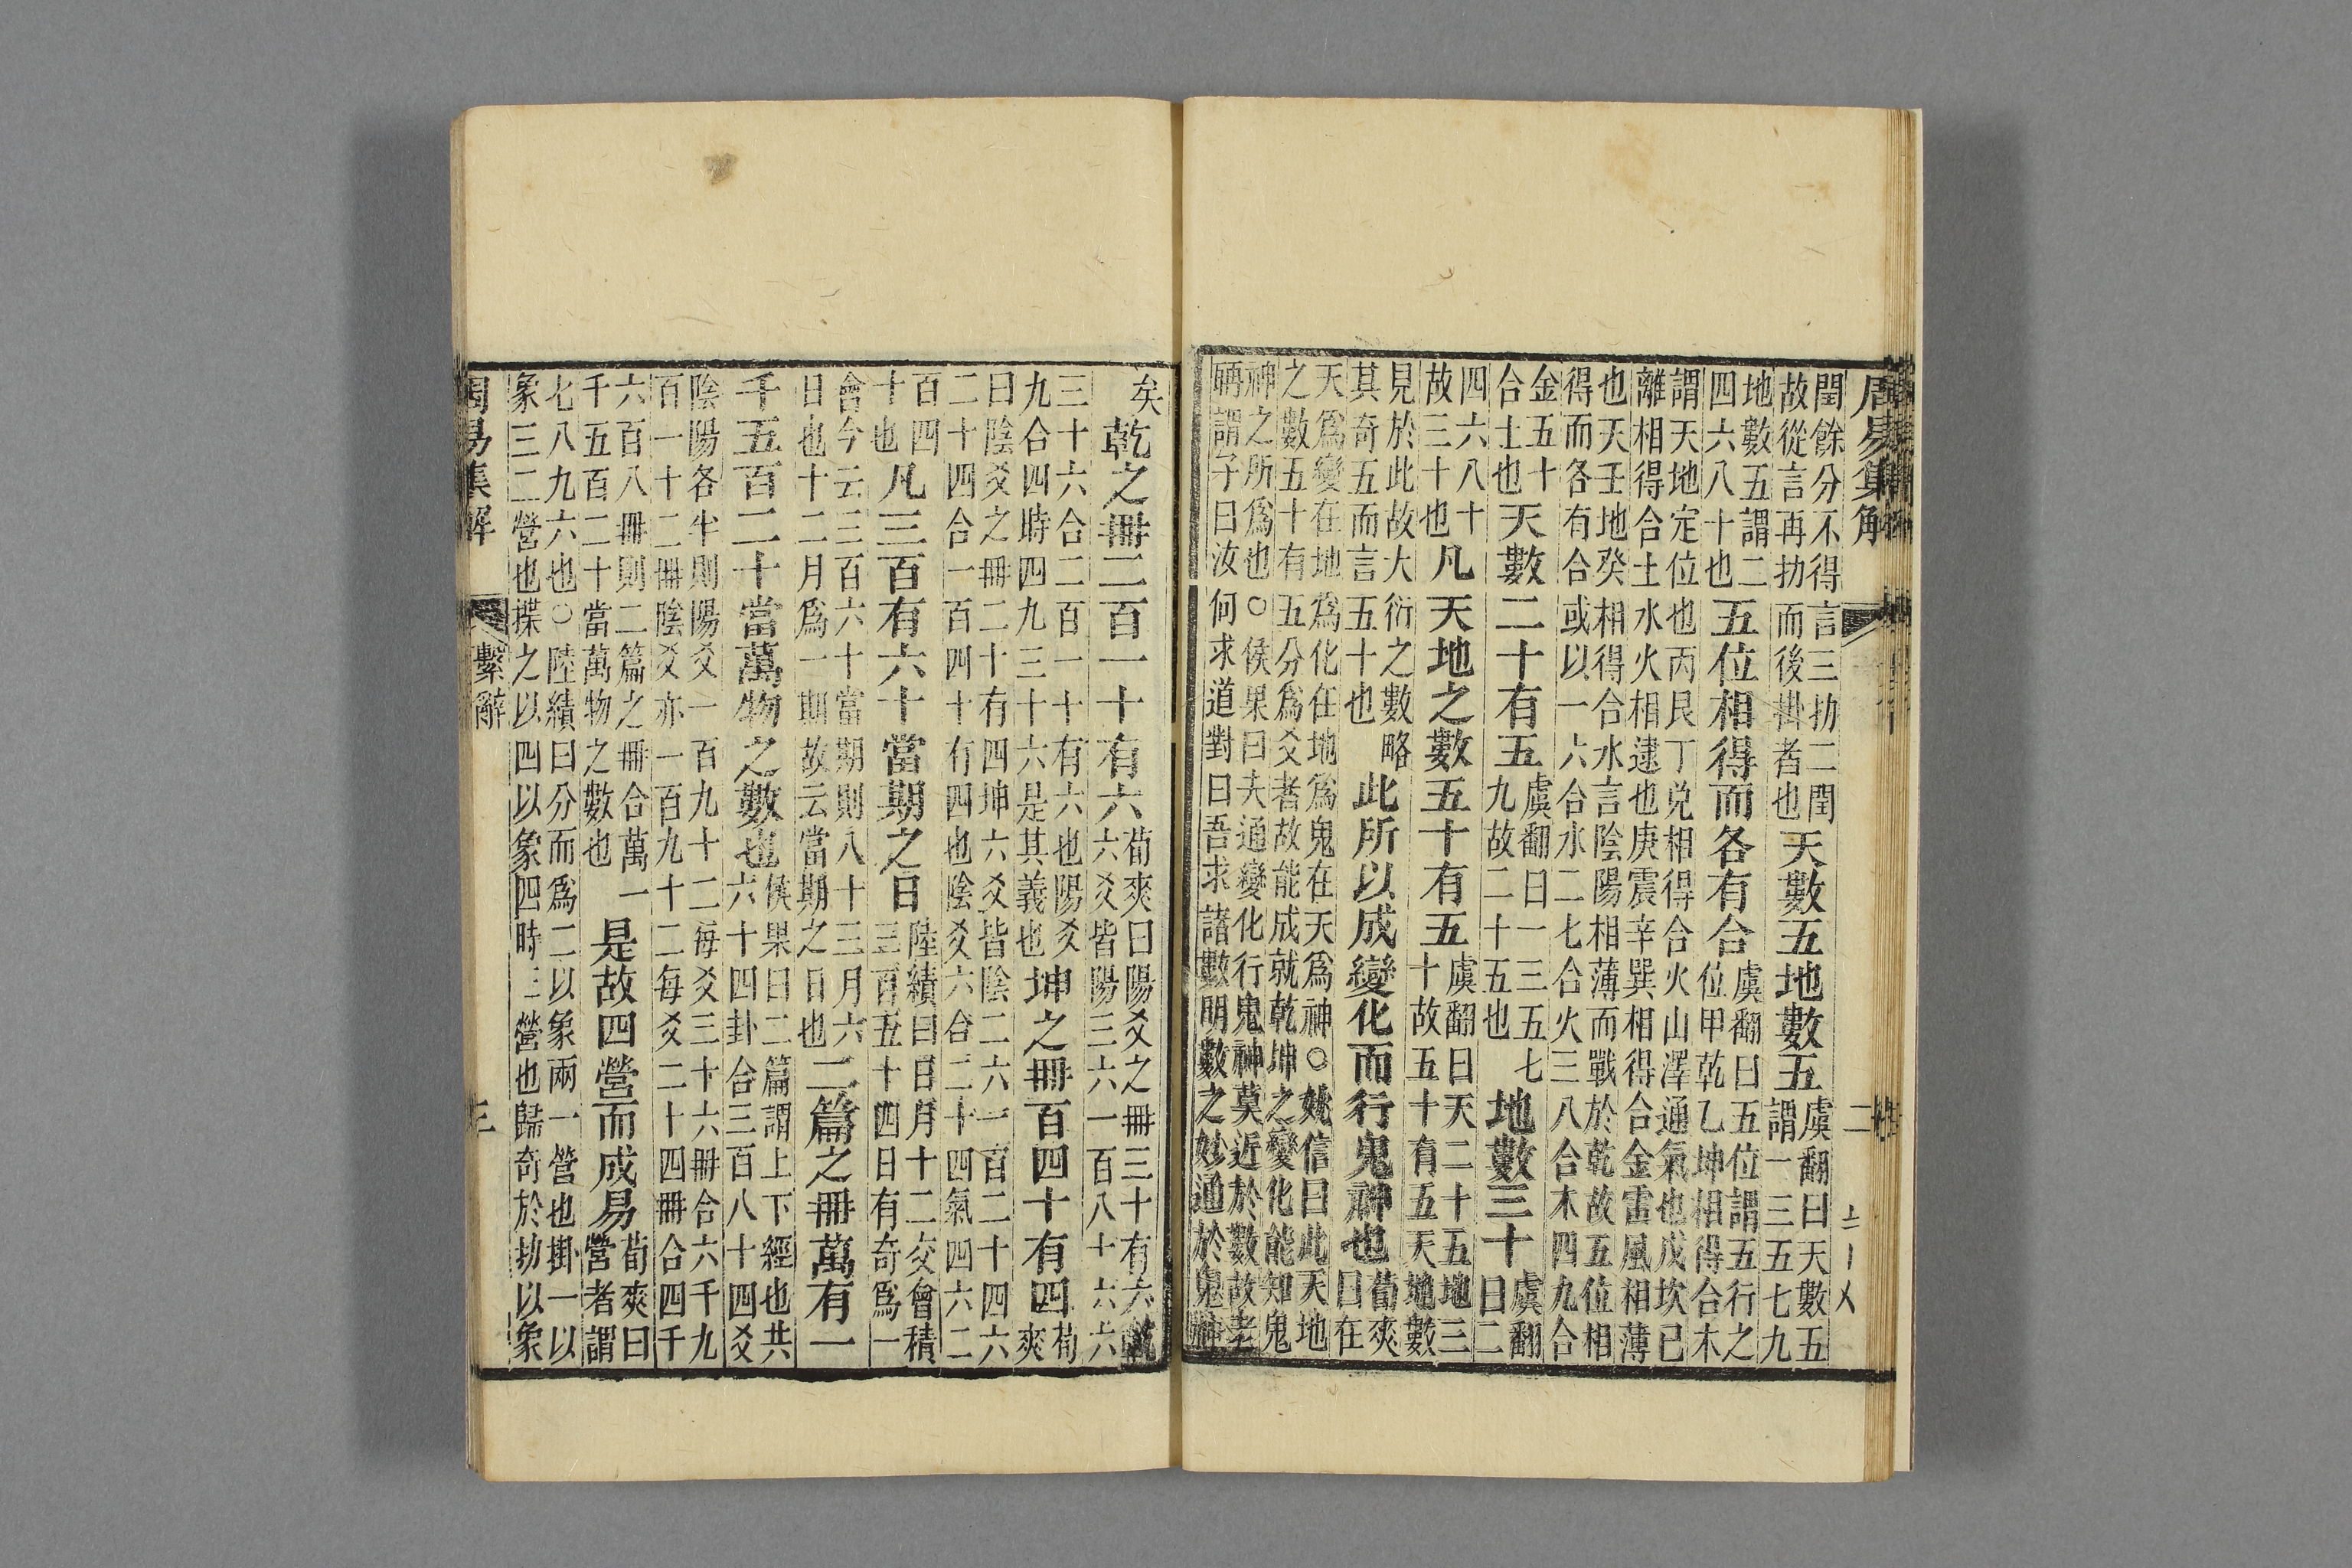 周易集解 二
閏餘分不得言三扐二閏
故從言再扐而後掛者也
天數五地數五
虞翻曰天數五
謂一三五七九
地數五謂二
四六八十也
五位相得而各有合
虞翻曰五位謂五行之
位甲乾乙坤相得合木
謂天地定位也丙艮丁兌相得合火山澤通氣也戊坎己
離相得合土水火相逮也庚震辛巽相得合金雷風相薄
也天壬地癸相得合水言陰陽相薄而戰於乾故五位相
得而各有合或以一六合水二七合火三八合木四九合
金五十
合土也
天數二十有五
虞翻曰一三五七
九故二十五也
地數三十
虞翻
曰二
四六八十
故三十也
凡天地之數五十有五
虞翻曰天二十五地三
十故五十有五天地數
見於此故大衍之數略
其奇五而言五十也
此所以成變化而行鬼神也
荀爽
曰在
天爲變在地爲化在地爲鬼在天爲神○姚信曰此天地
之數五十有五分爲爻者故能成就乾坤之變化能知鬼
神之所爲也○侯果曰夫通變化行鬼神莫近於數故老
聃謂子曰汝何求道對曰吾求諸數明數之妙通於鬼神
矣
乾之冊二百一十有六
荀爽曰陽爻之冊三十有六乾
六爻皆陽三六一百八十六六
三十六合二百一十有六也陽爻
九合四時四九三十六是其義也
坤之冊百四十有四
荀
爽
曰陰爻之冊二十有四坤六爻皆陰二六一百二十四六
二十四合一百四十有四也陰爻六合二十四氣四六二
百四
十也
凡三百有六十當期之日
陸績曰日月十二交會積
三百五十四日有奇爲一
會今云三百六十當期則八十三月六
日也十二月爲一期故云當期之日也
二篇之冊萬有一
千五百二十當萬物之數也
侯果曰二篇謂上下經也共
六十四卦合三百八十四爻
陰陽各半則陽爻一百九十二每爻三十六冊合六千九
百一十二冊陰爻亦一百九十二每爻二十四冊合四千
六百八冊則二篇之冊合萬一
千五百二十當萬物之數也
是故四營而成易
荀爽曰
營者謂
七八九六也○陸績曰分而爲二以象兩一營也掛一以
象三二營也揲之以四以象四時三營也歸奇於扐以象
周易集解 繫辭 三